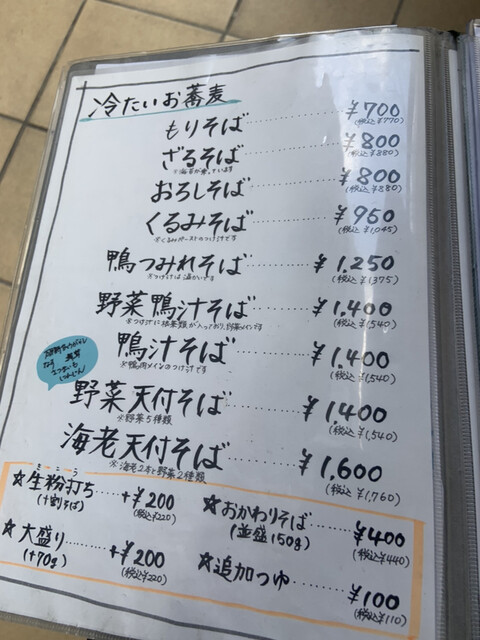 冷たいお蕎麦
もりそば ¥700
(税込¥770)
ざるそば ¥800
※海苔が乗っています (税込¥880)
おろしそば ¥800
(税込¥880)
くるみそば ¥950
※くるみペーストのつけ汁です (税込¥1,045)
鴨つみれそば ¥1,250
※つけ汁は温かいです (税込¥1375)
野菜鴨汁そば ¥1,400
※つけ汁に根菜類が入っており、野菜メインです (税込¥1,540)
鴨汁そば ¥1,400
※鴨肉メインのつけ汁です (税込¥1,540)
野菜天付そば ¥1,400
※野菜5種類 (税込¥1,540)
海老天付そば ¥1,600
※海老2本と野菜2種類 (税込¥1,760)
☆生粉打ち +¥200
きこう
(十割そば) (税込¥220)
☆大盛り +¥200
(+70g) (税込¥220)
☆おかわりそば ¥400
(並盛150g) (税込¥440)
☆追加つゆ ¥100
(税込¥110)